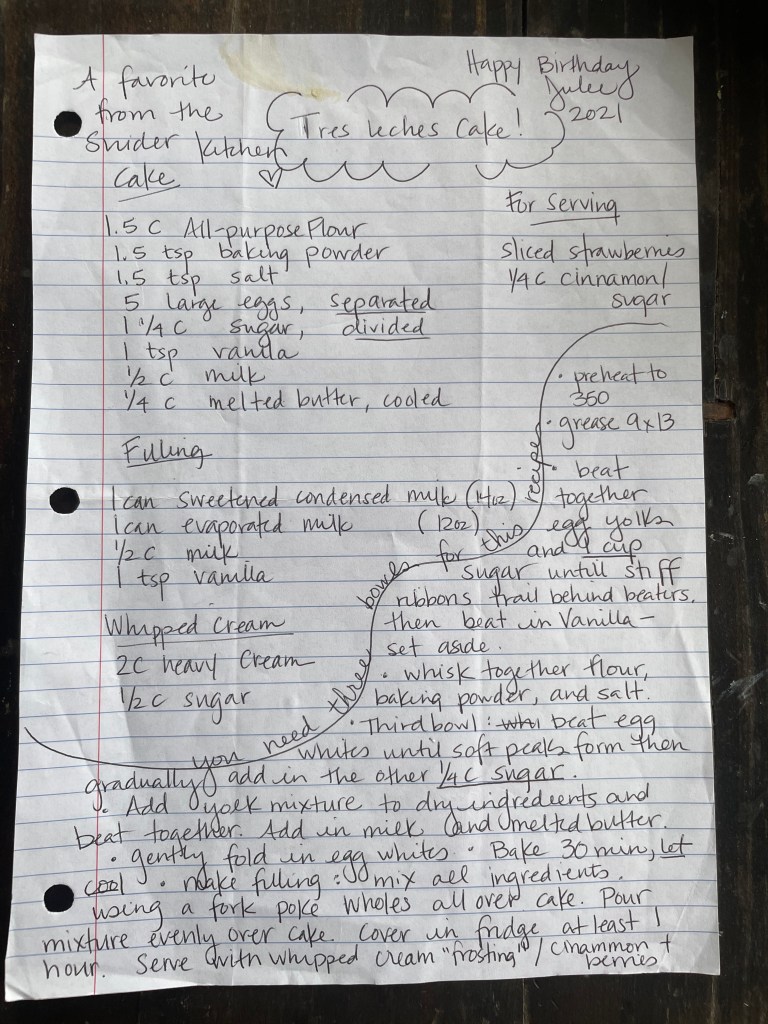 A favorite
from the
Snider Kitchen
Happy Birthday
Julee
2021
Tres Leches Cake!
Cake
1.5 C All-purpose Flour
1.5 tsp baking powder
1.5 tsp salt
5 large eggs, separated
1 1/4 C sugar, divided
1 tsp vanilla
1/2 C milk
1/4 C melted butter, cooled
For Serving
sliced strawberries
1/4 C cinnamon/
sugar
Filling
1 can sweetened condensed milk (14oz)
1 can evaporated milk (12oz)
1/2 C milk
1 tsp vanilla
Whipped Cream
2C heavy cream
1/2 C sugar
you need three bowls for this recipe
• preheat to
350
• grease 9x13
• beat
together
egg yolks
and 1 cup
sugar until stiff
ribbons trail behind beaters.
then beat in Vanilla —
set aside.
• whisk together flour,
baking powder, and salt.
• Third bowl: whi beat egg
whites until soft peaks form then
gradually add in the other 1/4 C sugar.
• Add yolk mixture to dry ingredients and
beat together. Add in milk and melted butter.
• gently fold in egg whites • Bake 30 min, let
cool • make filling: mix all ingredients.
using a fork poke wholes all over cake. Pour
mixture evenly over cake. Cover in fridge at least 1
hour. Serve with whipped cream "frosting" / cinammon +
berries